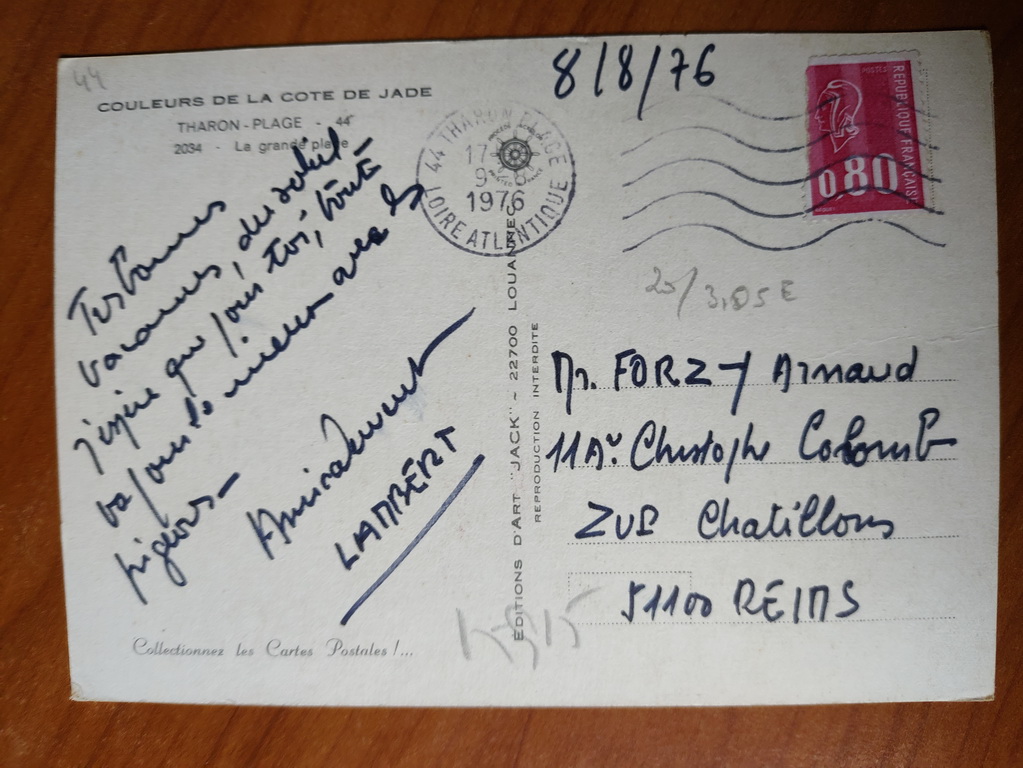 44
COULEURS DE LA COTE DE JADE
THARON-PLAGE - 44
2034 - La grande plage
8/8/76
44 THARON PLAGE
17
9-8
1976
LOIRE ATLANTIQUE
POSTES
REPUBLIQUE FRANÇAISE
0.80
Très bonnes
vacances, du soleil -
j'espère que pour toi, tout
va pour le mieux avec les
pigeons -
Amicalement
LAMBERT
Collectionnez les Cartes Postales !...
EDITIONS D'ART "JACK" - 22700 LOUANNEC
REPRODUCTION INTERDITE
20/3,05 E
Mr. FORZY Arnaud
11 Av Christophe Colomb
ZUP Chatillons
51100 REIMS